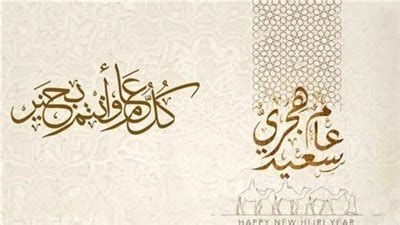 كل عام وأنتم بخير
عام هجري
سعيد
HAPPY NEW HIJRI YEAR